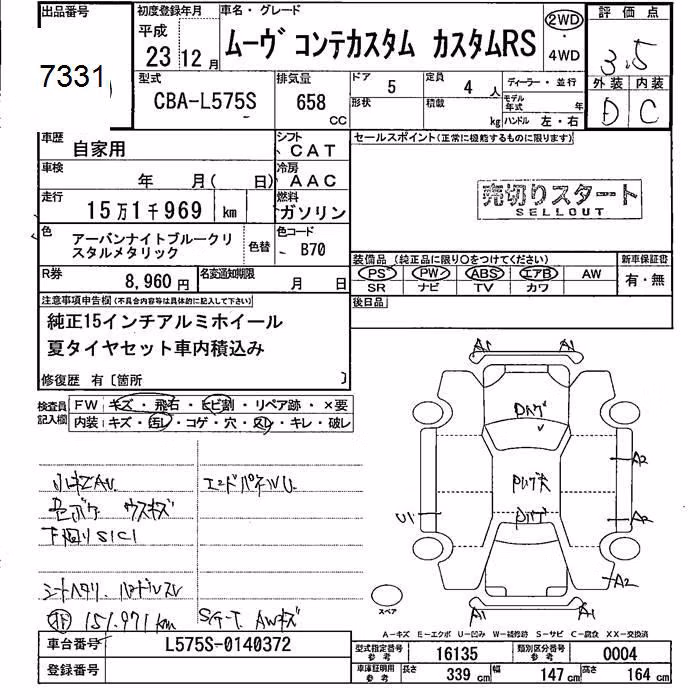 出品番号
7331
初度登録年月
平成
23 12月
車名・グレード
ムーヴ コンテカスタム カスタムRS
2WD
・
4WD
評価点
3.5
外装 内装
D C
型式
CBA-L575S
排気量
658
CC
ドア
5
定員
4 人
形状
積載
kg
ディーラー・並行
モデル年式 年
ハンドル 左・右
車歴
自家用
シフト
CAT
セールスポイント(正常に機能するものに限ります)
車検
年 月( 日)
冷房
AAC
走行
15万1千969 km
燃料
ガソリン
売切りスタート
SELLOUT
色
アーバンナイトブルークリ
スタルメタリック
色替
色コード
B70
装備品 (純正品に限り○をつけてください)
PS PW ABS エアB AW
SR ナビ TV カワ
新車保証書
有・無
R券
8,960 円
名変通知期限
月 日
後日品
注意事項申告欄(不具合内容等は具体的に記入して下さい)
純正15インチアルミホイール
夏タイヤセット車内積込み
修復歴 有〔箇所 〕
検査員
記入欄
FW キズ・飛石・ヒビ割・リペア跡・×要
内装 キズ・汚レ・コゲ・穴・スレ・キレ・破レ
小キズAU
エンドパネルU
色ボケ ウスキズ
下廻りS1C1
シートヘタリ ハンドルスレ
151,971km
S/T-T. AWキズ
A1 A1
A2
A2
A2
U1
A1 A1
スペア
A-キズ E-エクボ U-凹み W-補修跡 S-サビ C-腐食 XX-交換済
車台番号
L575S-0140372
登録番号
型式指定番号
参考
16135
類別区分番号
参考
0004
車庫証明用
参考
長さ
339 cm
幅
147 cm
高さ
164 cm